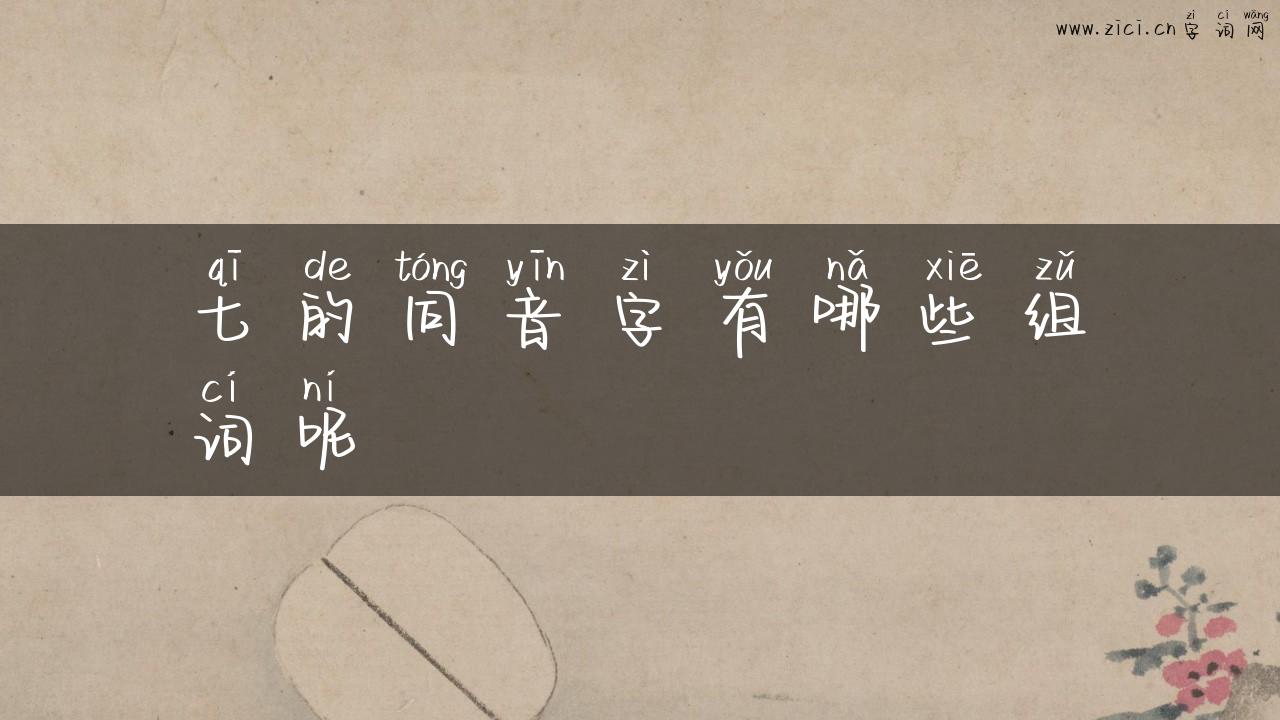 zì cí wǎng
www.zici.cn字词网
qī de tóng yīn zì yǒu nǎ xiē zǔ
七的同音字有哪些组
cí ní
词呢